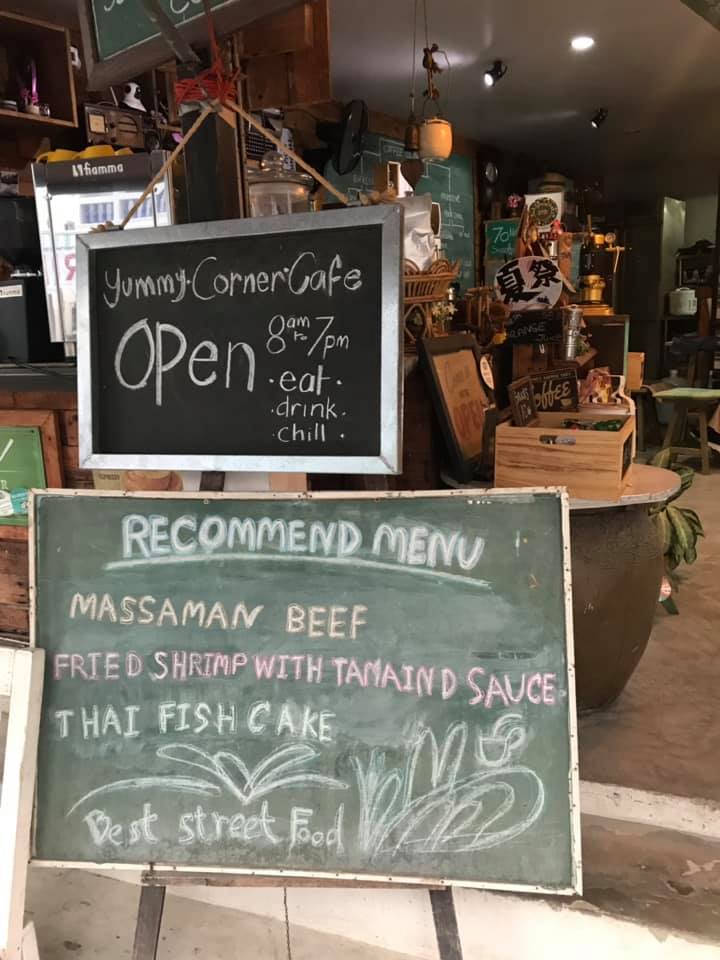 fiamma
Yummy·Corner·Cafe
OPen
8am to 7pm
·eat·
·drink·
·chill·
夏祭
70
ORANGE
Coffee
OPEN
RECOMMEND MENU
MASSAMAN BEEF
FRIED SHRIMP WITH TAMAIND SAUCE
THAI FISH CAKE
Best street Food